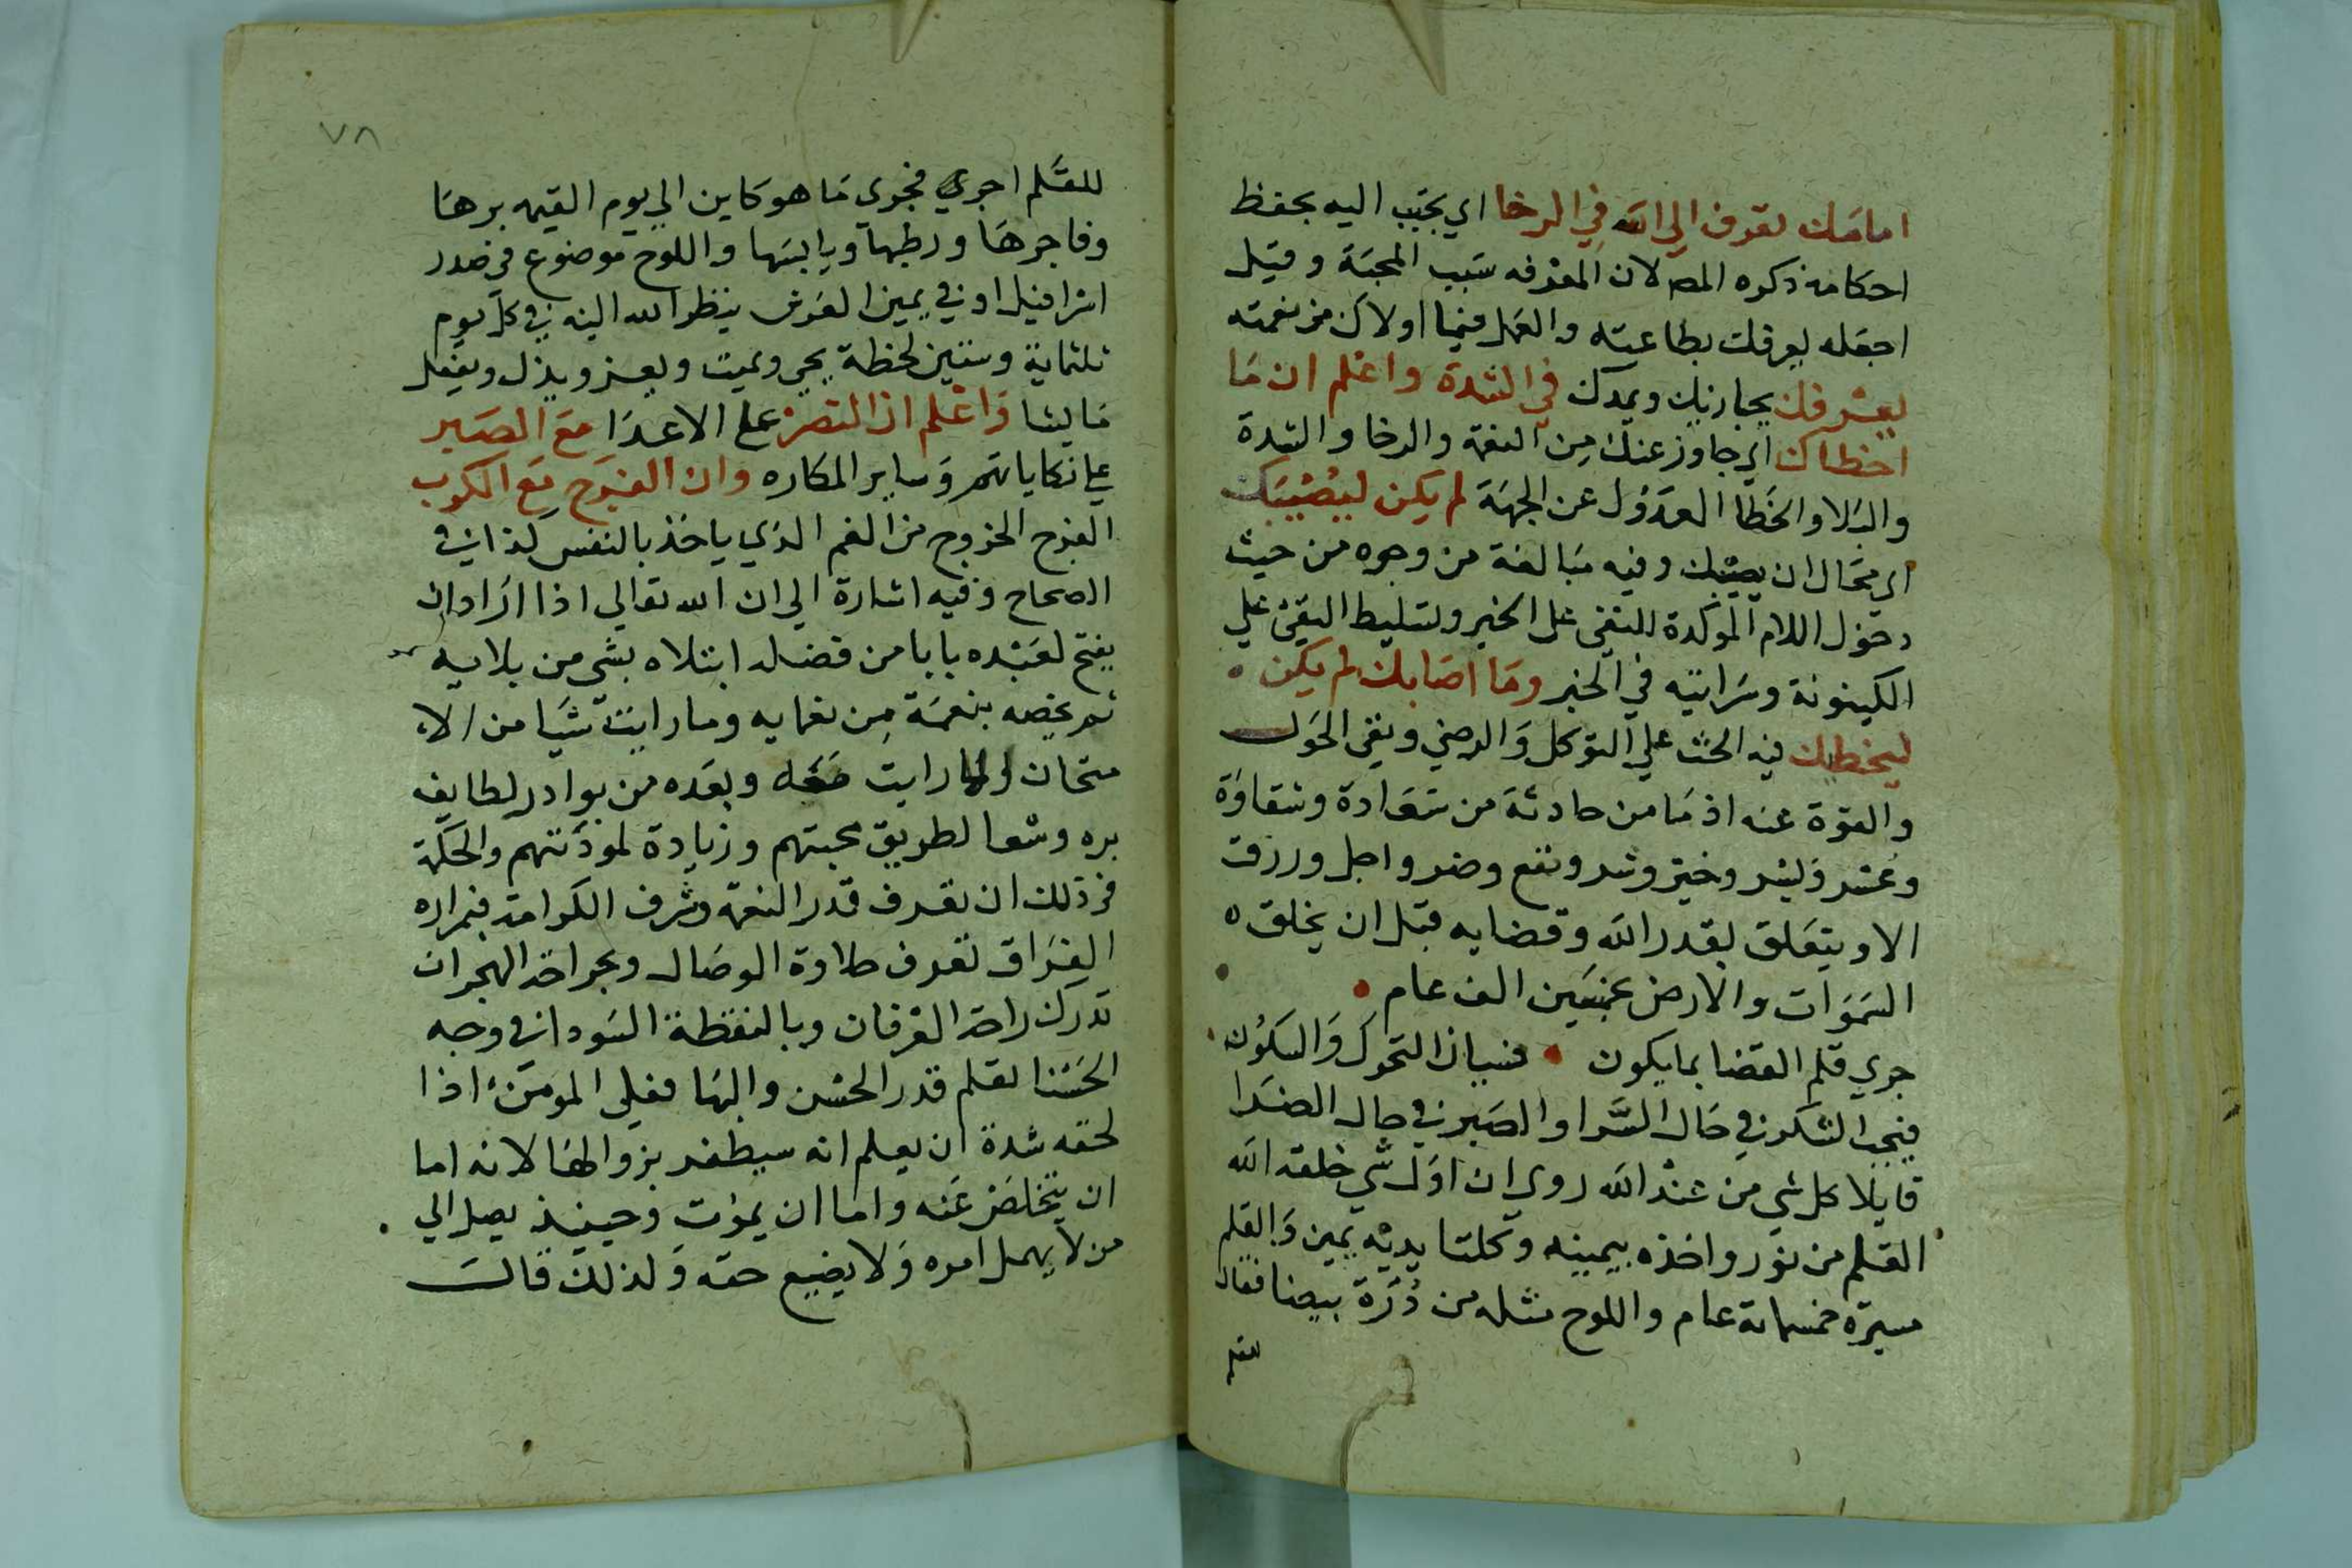 امامك تعرف الي الله في الرخا اي تحبب اليه بحفظ
احكامه ذكره المص لان المعرفه سبب المحبة وقيل
اجعله يعرفك بطاعته والعمل فيما اولاك من نعمته
يعرفك يجازيك ويمدك في الشدة واعلم ان ما
اخطاك اي جاوز عنك من النعمة والرخا والشدة
والبلا والخطا العدول عن الجهة لم يكن ليصيبك
اي محال ان يصيبك وفيه مبالغة من وجوه من حيث
دخول اللام الموكدة للنفي على الخبر وتسليط النفي علي
الكينونة وسرايته في الخبر وما اصابك لم يكن
ليخطيك فيه الحث علي التوكل والرضي ونفي الحول
والقوة عنه اذ ما من حادثة من سعادة وشقاوة
وعسر ويسر وخير وشر ونفع وضر واجل ورزق
الا ويتعلق بقدر الله وقضايه قبل ان يخلق
السموات والارض بخمسين الف عام
جري قلم القضا بما يكون فسيان التحرك والسكون
فيجب الشكر في حال السرا والصبر في حال الضرا
قايلا كل شي من عند الله روي ان اول شي خلقه الله
القلم من نور واخذه بيمينه وكلتا يديه يمين والقلم
مسيرة خمسماية عام واللوح مثله من درة بيضا فقال
للقلم
٧٨
للقلم اجري فجري ما هو كاين الي يوم القيمه برها
وفاجرها ورطبها ويابسها واللوح موضوع في صدر
اسرافيل او في يمين العرش ينظر الله اليه في كل يوم
ثلثماية وستين لحظة يحي ويميت ويعز ويذل ويفعل
ما يشا واعلم ان النصر علي الاعدا مع الصبر
علي نكاياتهم وساير المكاره وان الفرج مع الكرب
الفرج الخروج من الغم الذي ياخذ بالنفس كذا في
الصحاح وفيه اشارة الي ان الله تعالي اذا اراد ان
يفتح لعبده بابا من فضله ابتلاه بشي من بلايه
ثم يخصه بنعمة من نعمايه وما رايت شيا من الا
متحان الا رايت معه وبعده من بوادر لطايف
بره وشعا لطريق محبتهم وزيادة لمودتهم والحكمة
في ذلك ان تعرف قدر النعمة وشرف الكرامة فبمرارة
الفراق تعرف حلاوة الوصال وبجراحة الهجران
تدرك راحة العرفان وبالنقطة السودا في وجه
الحسنا تعلم قدر الحسن والبها فعلي المومن اذا
لحقه شدة ان يعلم انه سيظفر بزوالها لانه اما
ان يتخلص عنه واما ان يموت وحينيذ يصل الي
من لا يهمل امره ولا يضيع حقه ولذلك قالت